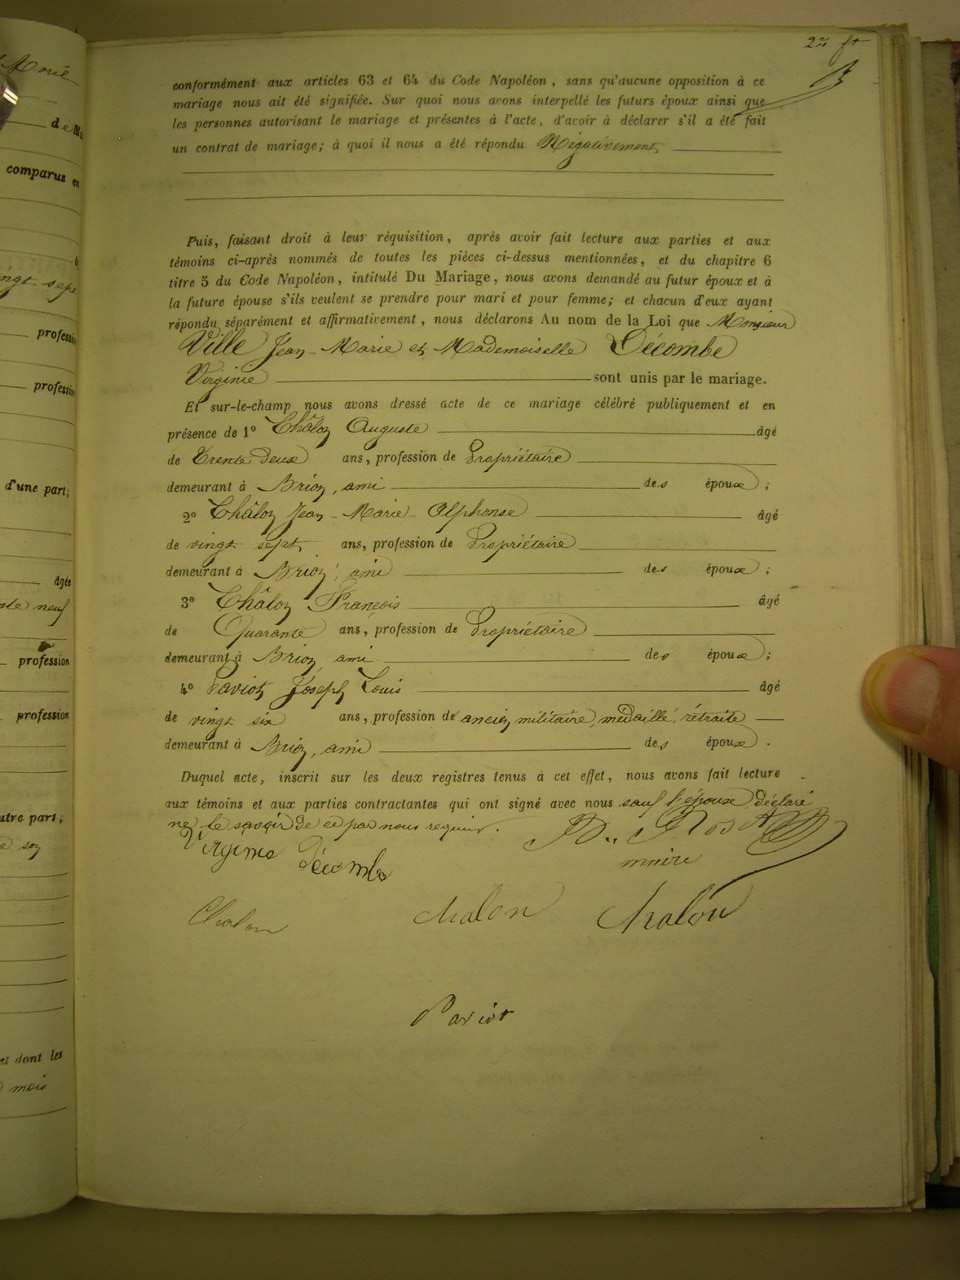 2
conformément aux articles 63 et 64 du Code Napoléon, sans qu'aucune opposition à ce
mariage nous ait été signifiée. Sur quoi nous avons interpellé les futurs époux ainsi que
les personnes autorisant le mariage et présentes à l'acte, d'avoir à déclarer s'il a été fait
un contrat de mariage; à quoi il nous a été répondu Négativement,
Puis, faisant droit à leur réquisition, après avoir fait lecture aux parties et aux
témoins ci-après nommés de toutes les pièces ci-dessus mentionnées, et du chapitre 6
titre 5 du Code Napoléon, intitulé Du Mariage, nous avons demandé au futur époux et à
la future épouse s'ils veulent se prendre pour mari et pour femme; et chacun d'eux ayant
répondu séparément et affirmativement, nous déclarons Au nom de la Loi que Monsieur
Ville Jean-Marie et Mademoiselle Décombe
Virginie sont unis par le mariage.
Et sur-le-champ nous avons dressé acte de ce mariage célébré publiquement et en
présence de 1º Châlon Auguste âgé
de Trente deux ans, profession de Propriétaire
demeurant à Brion, ami des époux;
2º Châlon Jean-Marie-Alphonse âgé
de vingt sept, ans, profession de Propriétaire
demeurant à Brion, ami des époux;
3º Châlon François âgé
de Quarante ans, profession de Propriétaire
demeurant à Brion, ami des époux;
4º Paviot Joseph Louis âgé
de vingt six ans, profession de ancien militaire, médaillé, rétraité
demeurant à Brion, ami des époux.
Duquel acte, inscrit sur les deux registres tenus à cet effet, nous avons fait lecture
aux témoins et aux parties contractantes qui ont signé avec nous sauf l'époux déclaré
ne le savoir de ce par nous requis.
Virginie Décombe
maire
Chalon chalon Chalon
Paviot
Marie
de
comparus en
vingt sept
profession
profession
d'une part;
âgée
neuf
profession
profession
autre part;
et dont les
mois